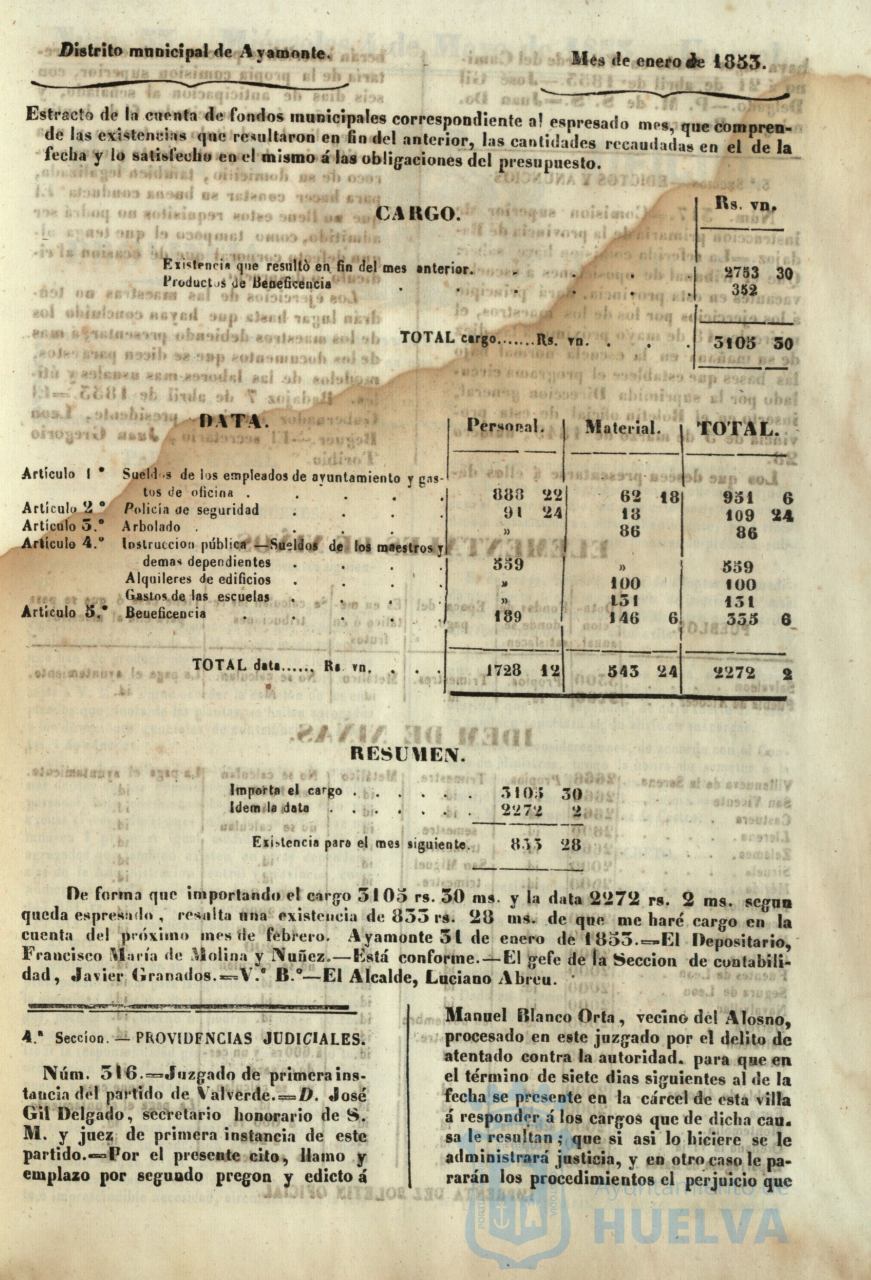 Distrito municipal de Ayamonte.
Mes de enero de 1853.
Estracto de la cuenta de fondos municipales correspondiente al espresado mes, que compren-
de las existencias que resultaron en fin del anterior, las cantidades recaudadas en el de la
fecha y lo satisfecho en el mismo á las obligaciones del presupuesto.
CARGO.
Rs. vn.
Existencia que resultó en fin del mes anterior. . . . . 2753 30
Productos de Beneficencia . . . . . 352
TOTAL cargo.......Rs. vn. . . . 3105 30
DATA.
Personal. Material. TOTAL.
Artículo 1º Sueldos de los empleados de ayuntamiento y gas-
tos de oficina . . . . . 888 22 62 18 951 6
Artículo 2º Policia de seguridad . . . . 91 24 18 109 24
Artículo 3.º Arbolado . . . . . » 86 86
Artículo 4.º Instruccion pública—Sueldos de los maestros y
demas dependientes . . . . 559 » 559
Alquileres de edificios . . . . » 100 100
Gastos de las escuelas . . . . » 131 131
Artículo 5.º Beneficencia . . . . 189 146 6 335 6
TOTAL data...... Rs vn. . . . 1728 12 543 24 2272 2
RESUMEN.
Importa el cargo . . . . . . 3105 30
Idem la data . . . . . . 2272 2
Existencia para el mes siguiente. 833 28
De forma que importando el cargo 3105 rs. 30 ms. y la data 2272 rs. 2 ms. segun
queda espresado, resulta una existencia de 833 rs. 28 ms. de que me haré cargo en la
cuenta del próximo mes de febrero. Ayamonte 31 de enero de 1853.=El Depositario,
Francisco María de Molina y Nuñez.—Está conforme.—El gefe de la Seccion de contabili-
dad, Javier Granados.=V.º B.º—El Alcalde, Luciano Abreu.
4.ª Seccion.—PROVIDENCIAS JUDICIALES.
Núm. 316.=Juzgado de primera ins-
tancia del partido de Valverde.=D. José
Gil Delgado, secretario honorario de S.
M. y juez de primera instancia de este
partido.=Por el presente cito, llamo y
emplazo por segundo pregon y edicto á
Manuel Blanco Orta, vecino del Alosno,
procesado en este juzgado por el delito de
atentado contra la autoridad. para que en
el término de siete dias siguientes al de la
fecha se presente en la cárcel de esta villa
á responder á los cargos que de dicha cau-
sa le resultan; que si asi lo hiciere se le
administrará justicia, y en otro caso le pa-
rarán los procedimientos el perjuicio que
Ayuntamiento de
HUELVA